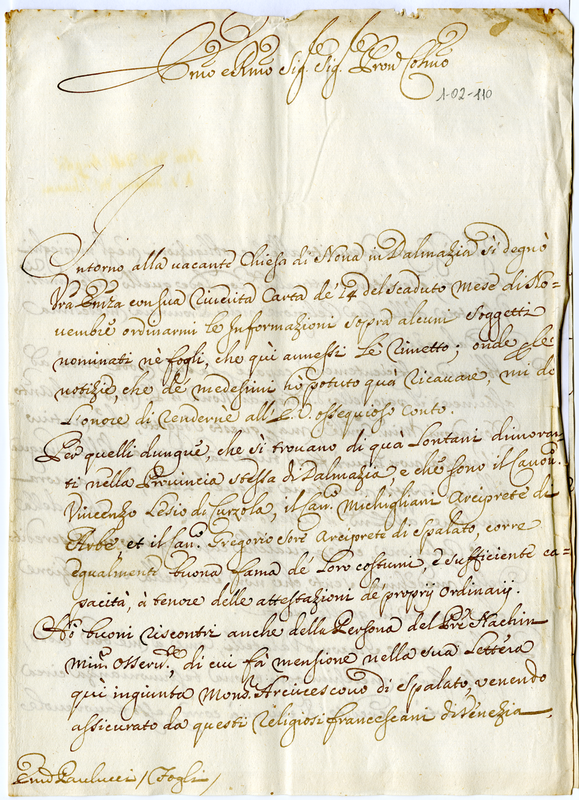 Emo e Rmo Sig. Sig. Pron Colmo
1-02-110
Intorno alla vacante Chiesa di Nona in Dalmazia si degnò
Vra Emza con sua riverita Carta de' 14 del scaduto mese di No-
vembre ordinarmi le Informazioni sopra alcuni soggetti
nominati nè fogli, che quì annessi Le rimetto; onde le
notizie, che de' medesimi hò potuto quà ricavare, mi dò
l'onore di renderne all' ossequioso conto.
Per quelli dunque, che si trovano di quà lontani dimoran-
ti nella Provincia stessa di Dalmazia, e che sono il Canon.
Vincenzo Lesio di Curzola, il Can. Michigliani Arciprete di
Arbe, et il Can. Gregorio Arciprete di Spalato corre
egualmente buona fama de' Loro costumi, e sufficiente ca-
pacità, à tenore delle attestazioni de' proprij Ordinarij.
Hò buoni riscontri anche della Persona del Pre Nachin
Min. Osserv., di cui fà menzione nella sua Lettera
quì ingiunta Mons. Arcivescovo di Spalato, venendo
assicurato da questi Religiosi Francescani di Venezia,
Paulucci / Fogli /